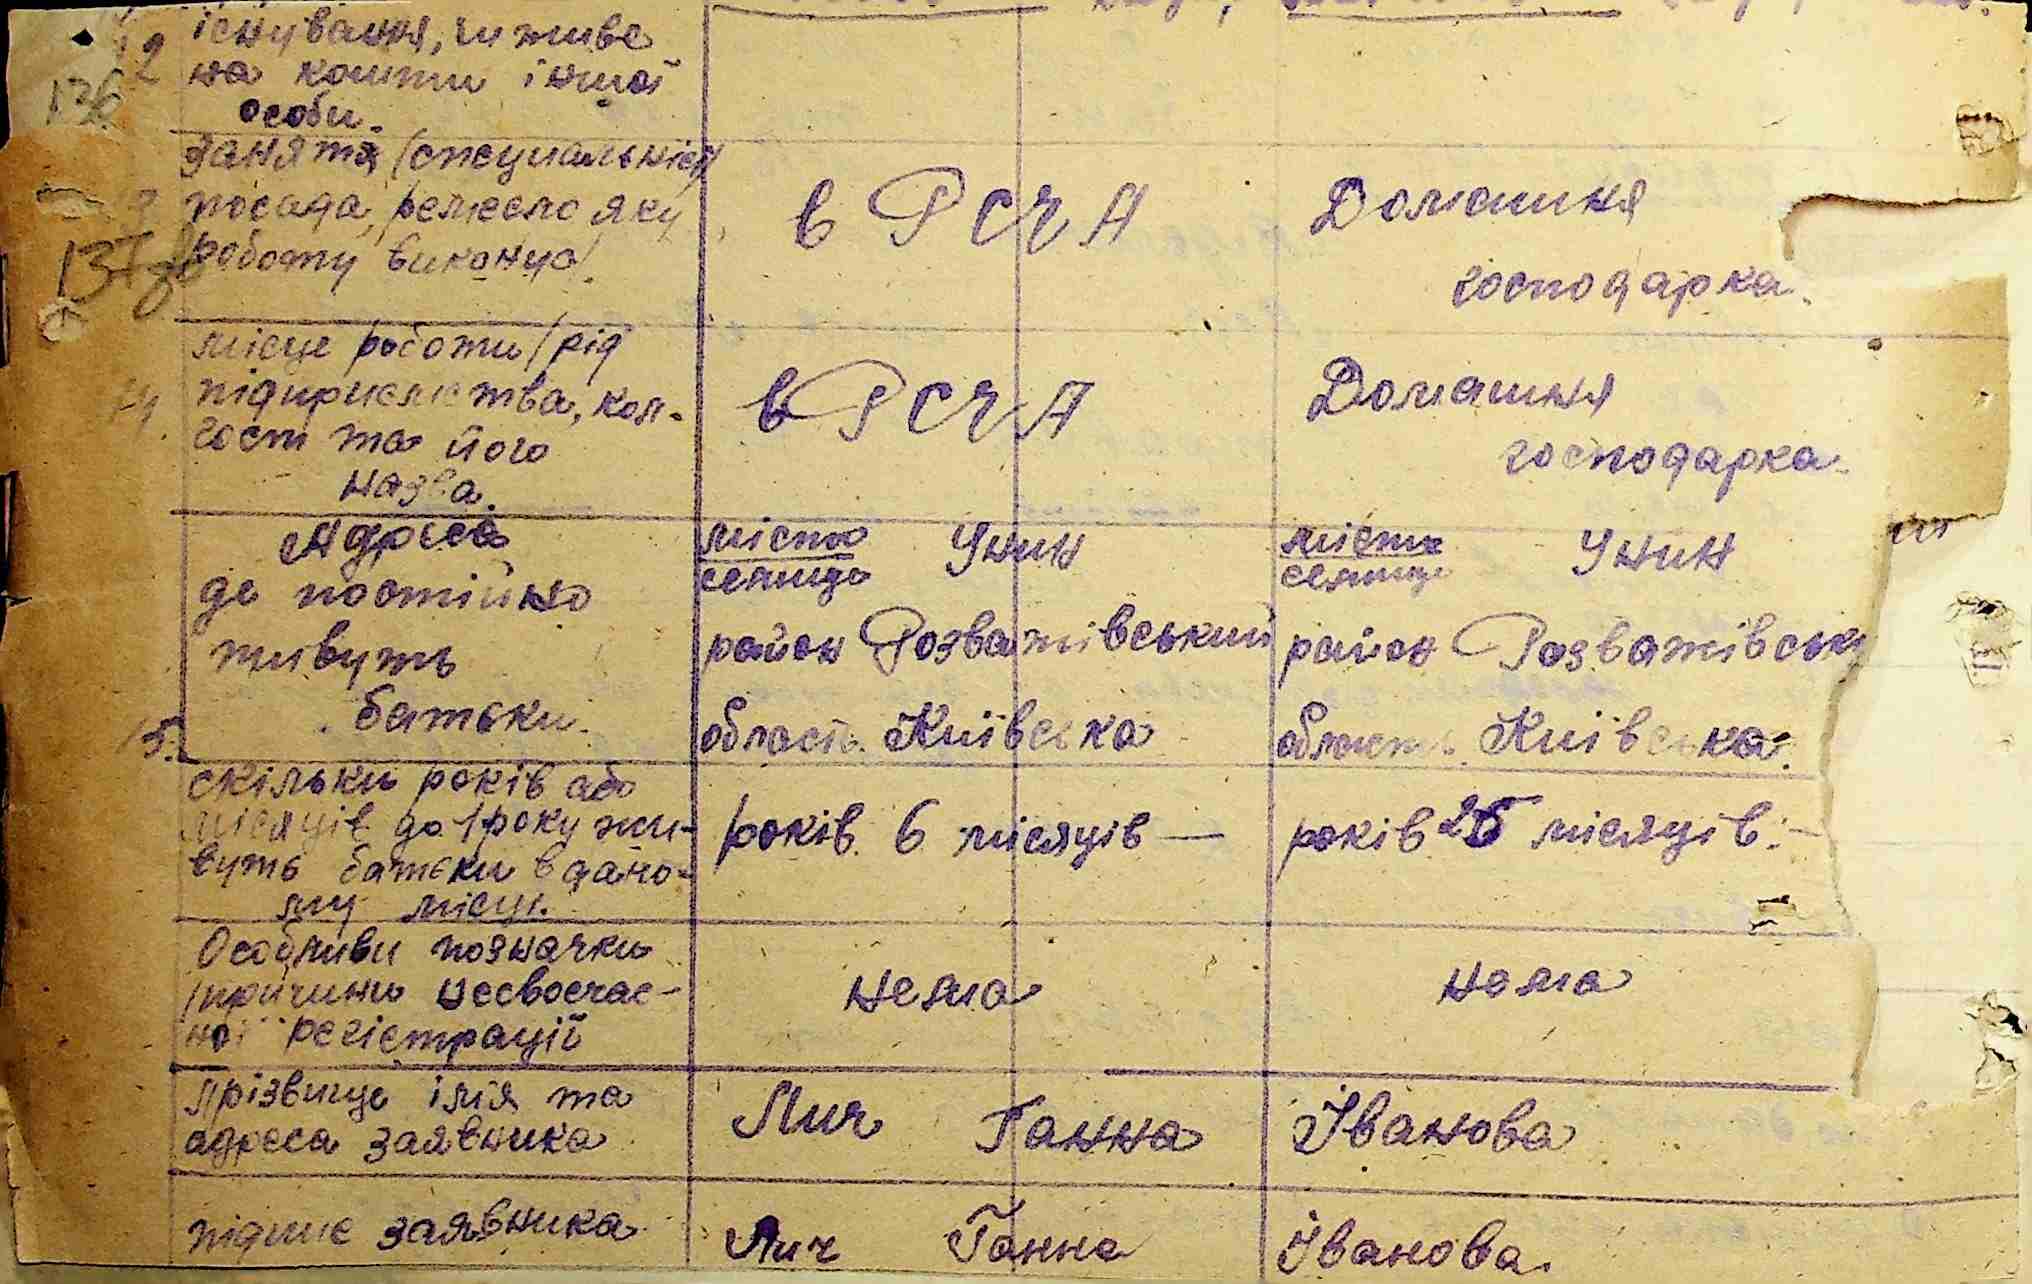 12 існування, чи живе
на кошти іншої
особи.
136
Заняття (специальність
посада, ремесло яку
роботу виконує/.
в РСЧА
Домашня
господарка.
137
місце роботи /рід
14. підприємства, кол-
госп та його
назва.
в РСЧА
Домашня
господарка.
Адреса
де постійно
живуть
батьки.
місто
селище Унин
район Розважівський
область Київська
місто
селище Унин
район Розважівськ
область Київська.
15. скільки років або
місяців до 1 року жи-
вуть батьки в дано-
му місці.
років 6 місяців —
років 25 місяців. —
Особливи позначки
/причини несвоєчас-
ної регістрації
нема
нема
прізвище імя та
адреса заявника
Лич Ганна Іванова
підпис заявника
Лич Ганна Іванова.